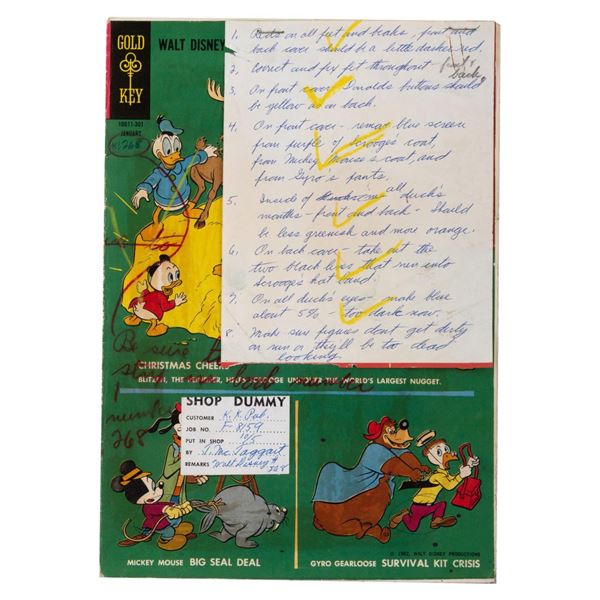 GOLD
KEY
WALT DISNEY
10011-301
JANUARY
268
1. Reds on all feet and beaks, front and
back cover should be a little darker red.
2. Correct and fix fit throughout
back.
3. On front cover - Donalds buttons should
be yellow as on back.
4. On front cover - remove blue screen
from purple of Scrooge's coat,
from Mickey Mouse's coat, and
from Gyro's pants.
5. Inside of all duck's
mouths - front and back - should
be less greenish and more orange.
6. On back cover - take out the
two black lines that run into
Scrooge's hat band.
7. On all duck's eyes - make blue
about 5% - too dark now.
8. Make sure figures don't get dirty
on run or they'll be too dead
looking.
Be sure to
number
number
268
CHRISTMAS CHEERS
BLITZEN, THE REINDEER, HELPS SCROOGE UNCOVER THE WORLD'S LARGEST NUGGET.
SHOP DUMMY
CUSTOMER K.K. Pub.
JOB NO. F-8159
PUT IN SHOP 10/5
BY J. McTaggart
REMARKS Walt Disney #
268
MICKEY MOUSE BIG SEAL DEAL
© 1962, WALT DISNEY PRODUCTIONS
GYRO GEARLOOSE SURVIVAL KIT CRISIS